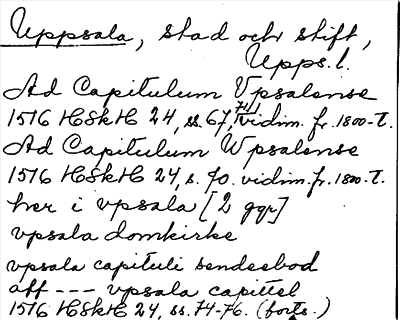 Uppsala, stad och stift,
Upps. l.
Ad Capitulum Vpsalense
1516 HSkH 24, ss. 67, 71, vidim. fr. 1800-t.
Ad Capitulum Wpsalense
1516 HSkH 24, s. 70. vidim. fr. 1800-t.
her i vpsala [2 ggr]
vpsala domkirke
vpsala capituli sendeebod
aff --- vpsala capittel
1516 HSkH 24, ss. 74-76. (forts.)